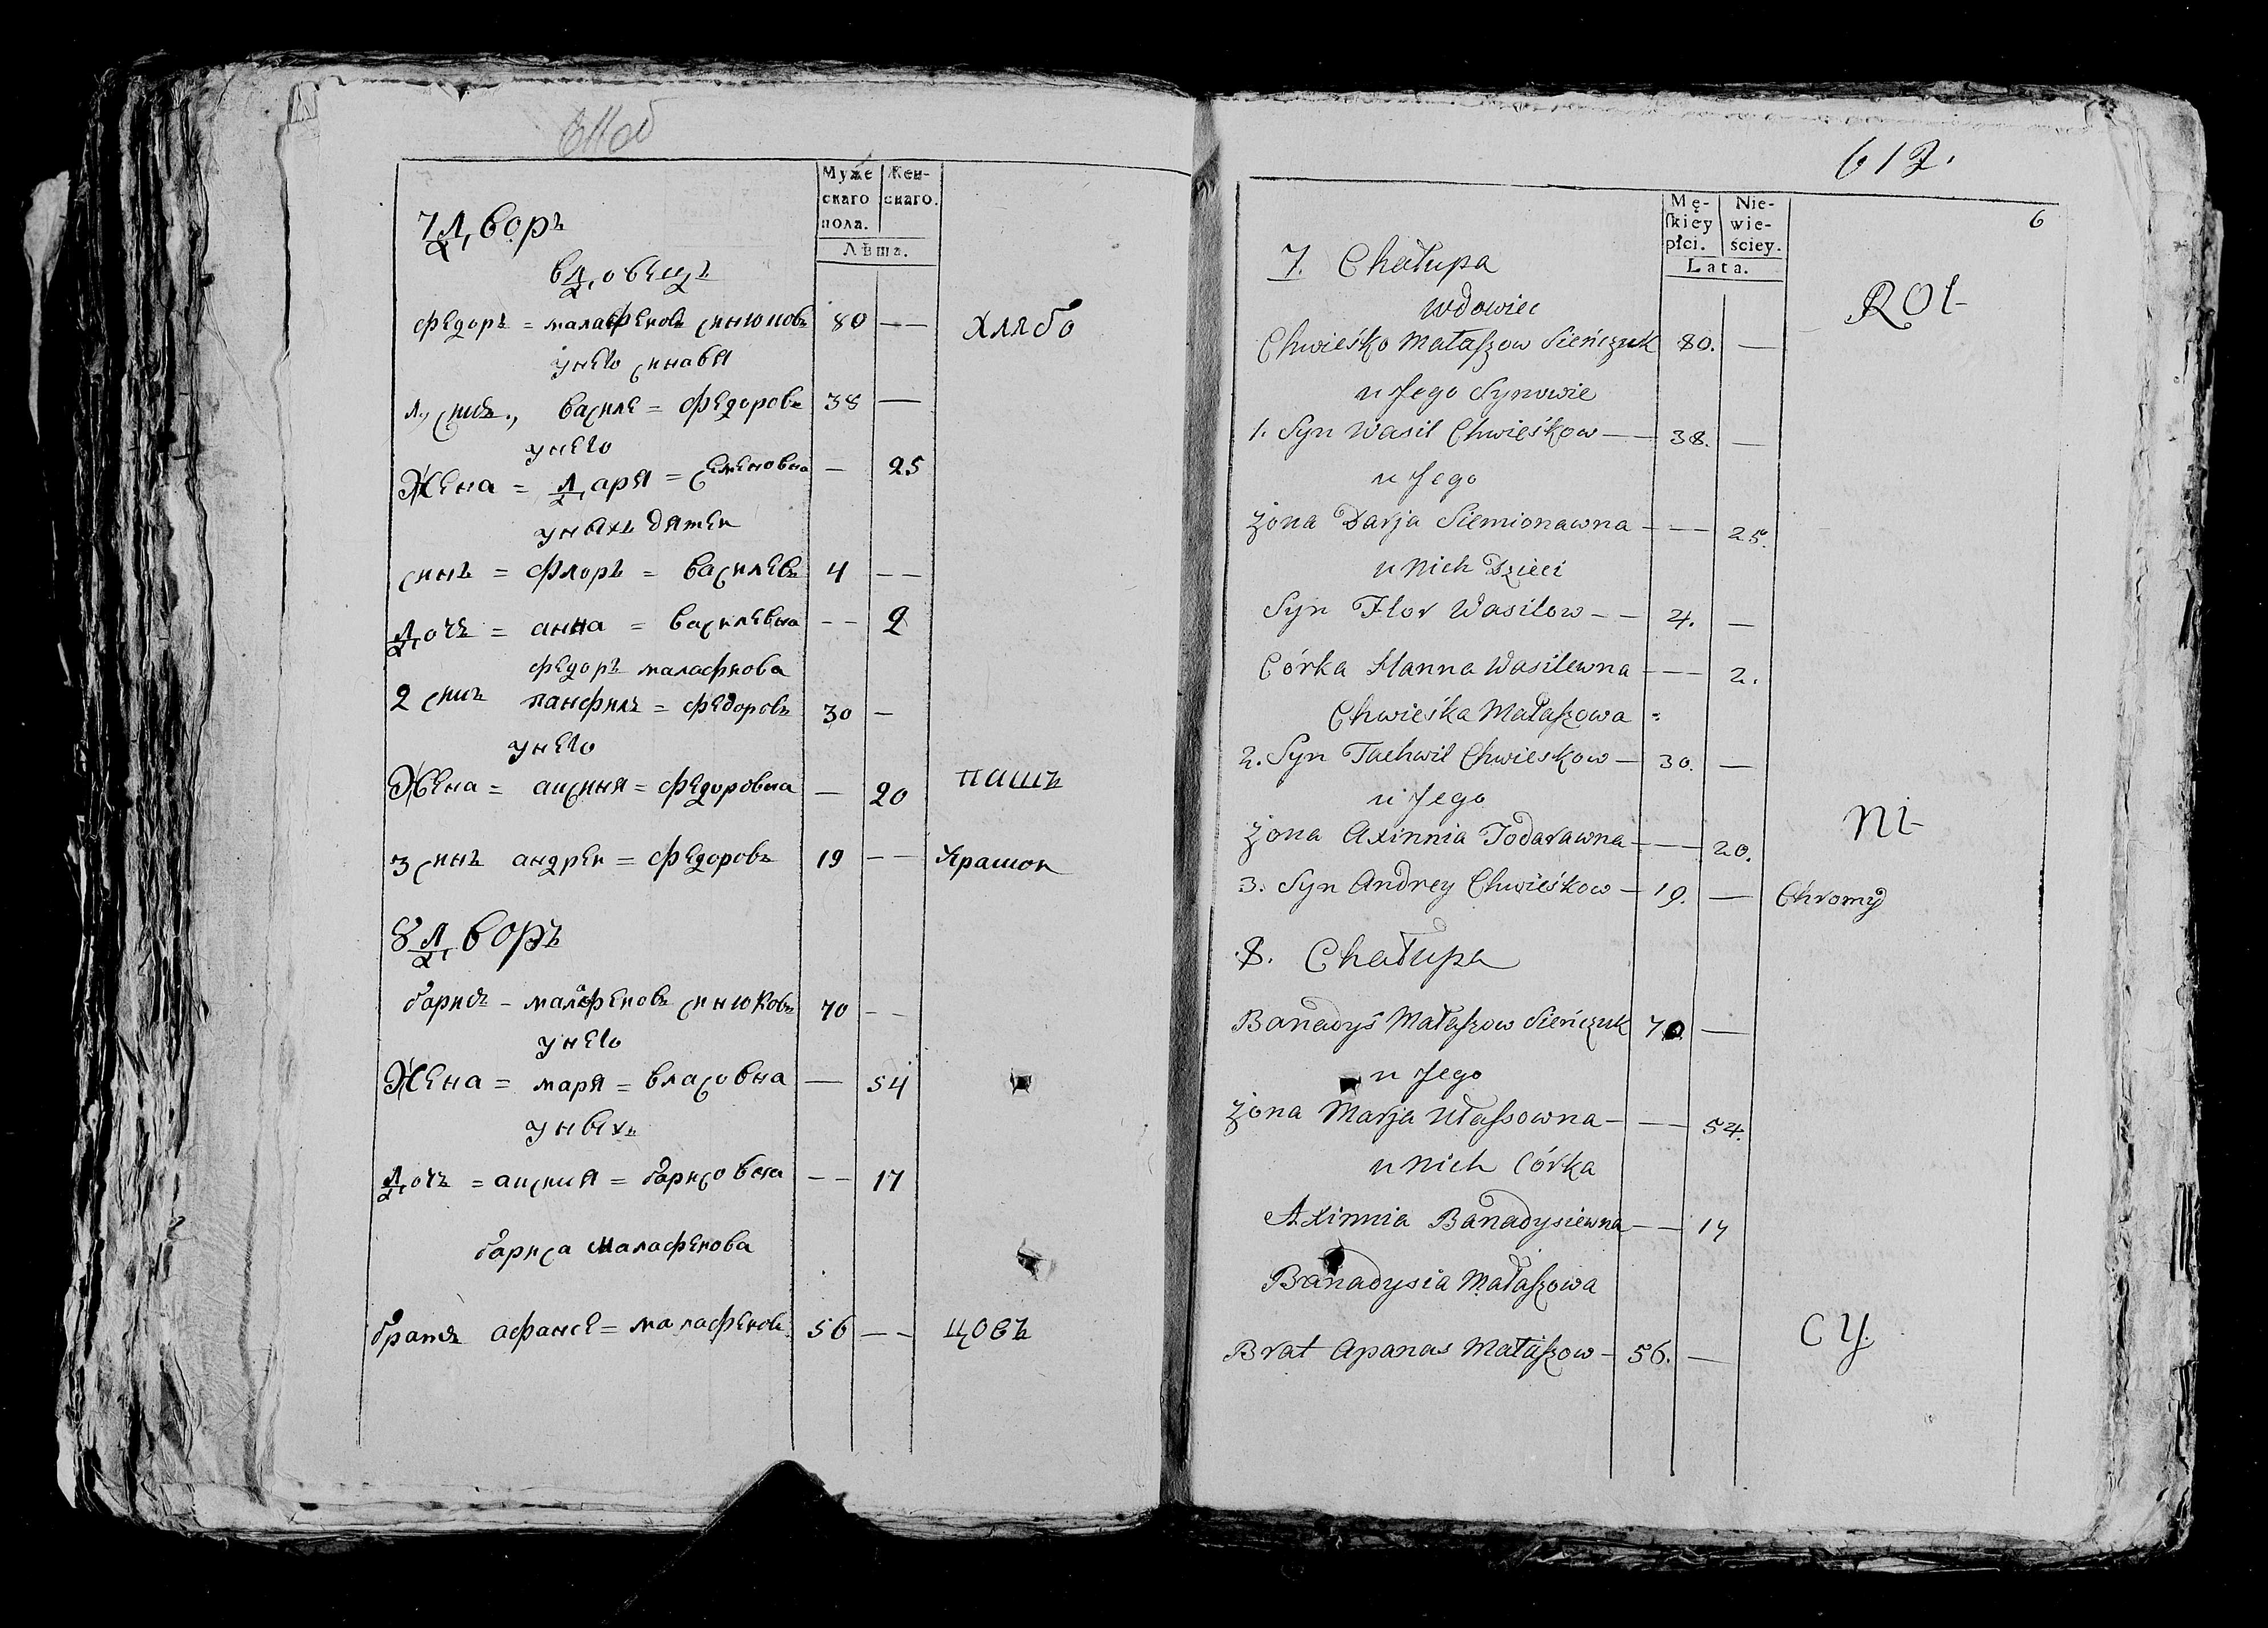 611об
Муже
скаго
пола.
Жен-
скаго.
Лѣта.
7 Дворъ
вдовецъ
федоръ = малафеновъ синюковъ 80 — —
хлябо
унего синавя
1, синъ, василе = федоровъ 38 —
унего
Жена = даря = семеновна — 25
уныхъ дятен
синъ = флоръ = василевъ 4 — —
дочъ = анна = василевна — — 2
федоръ малафиова
2 синъ панфилъ = федоровъ 30 —
унего
Жена = аксиня = федоровна — 20
пашъ
3 синъ андреи = федоровъ 19 — —
Храмои
8 Дворъ
бариъ - малафеновъ синюковъ 70 — —
унего
Жена = маря = власовна — 54
уныхъ
дочъ = аксиния = барисовна — — 17
бариса малафенова
братъ афансе = малафеновъ 56 — —
цовъ
612.
6
Mę-
skiey
płci.
Nie-
wie-
ściey.
Lata.
7. Chałupa
Rol-
Wdowiec
Chwieśko Małaszow Sieńczuk 80. —
u Jego Synowie
1. Syn Wasil Chwieśkow — — 38. —
u Jego
żona Darja Siemionawna — — — 25.
u Nich Dzieci
Syn Flor Wasilow — — 4. —
Córka Hanna Wasilewna — — — 2.
Chwieśka Małaszowa =
2. Syn Pachwil Chwieskow — 30. —
u Jego
żona Axinnia Todarawna — — — 20.
ni-
3. Syn Andrey Chwieśkow — 19. —
Chromy
8. Chałupa
Banadyś Małaszow Sieńczuk 70. —
u Jego
żona Marja Ułassowna — — — 54.
u Nich Córka
Axinnia Banadysiewna — — 17
Banadysia Małaszowa
Brat Apanas Małaszow — 56. —
cy.